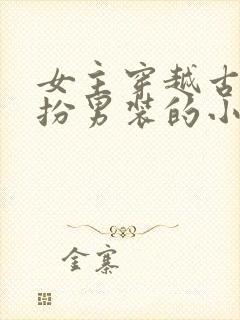 女主穿越古
扮男装的小
金寨